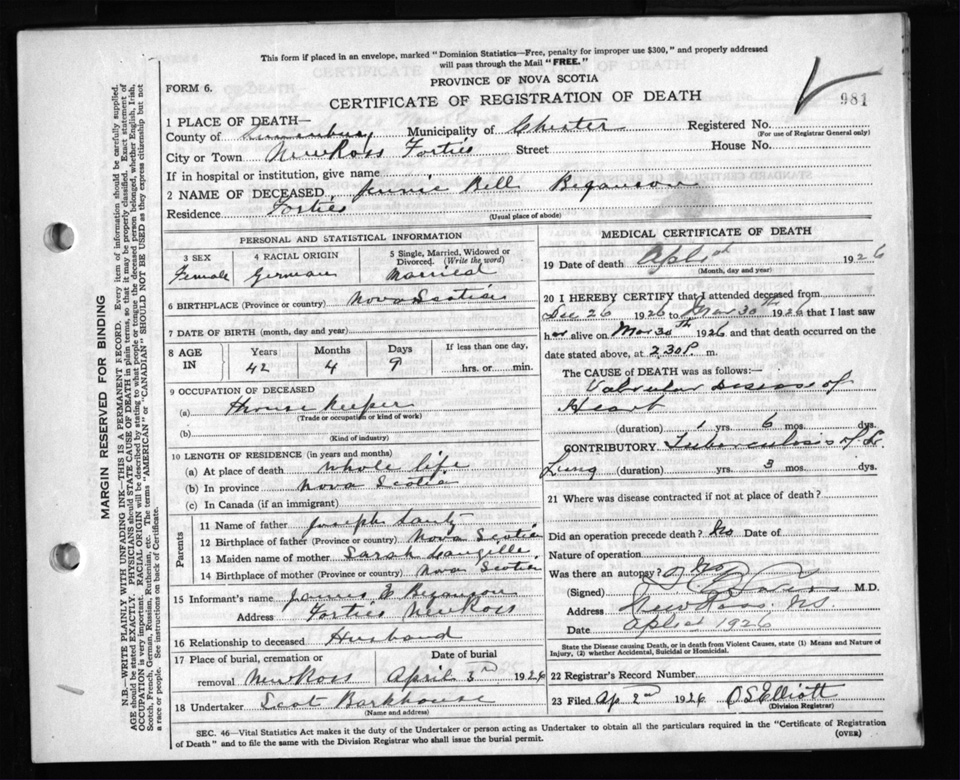 This form if placed in an envelope, marked "Dominion Statistics—Free, penalty for improper use $300," and properly addressed
will pass through the Mail "FREE."
PROVINCE OF NOVA SCOTIA
FORM 6.
CERTIFICATE OF REGISTRATION OF DEATH
981
1 PLACE OF DEATH—
County of Lunenburg Municipality of Chester Registered No.
(For use of Registrar General only)
City or Town New Ross Forties Street House No.
If in hospital or institution, give name
2 NAME OF DECEASED Bell
Residence Forties
(Usual place of abode)
PERSONAL AND STATISTICAL INFORMATION
3 SEX
Female
4 RACIAL ORIGIN
German
5 Single, Married, Widowed or Divorced. (Write the word)
Married
6 BIRTHPLACE (Province or country) Nova Scotia
7 DATE OF BIRTH (month, day and year)
8 AGE IN
Years Months Days If less than one day,
42 4 9 hrs. or min.
9 OCCUPATION OF DECEASED
(a) House Keeper
(Trade or occupation or kind of work)
(b)
(Kind of industry)
10 LENGTH OF RESIDENCE (in years and months)
(a) At place of death whole life
(b) In province Nova Scotia
(c) In Canada (if an immigrant)
Parents
11 Name of father Joseph
12 Birthplace of father (Province or country) Nova Scotia
13 Maiden name of mother Sarah Langille
14 Birthplace of mother (Province or country) Nova Scotia
15 Informant's name James
Address Forties New Ross
16 Relationship to deceased Husband
17 Place of burial, cremation or removal New Ross
Date of burial
April 3rd 1926
18 Undertaker Scot Barkhouse
(Name and address)
MEDICAL CERTIFICATE OF DEATH
19 Date of death Apl 1st 1926
(Month, day and year)
20 I HEREBY CERTIFY that I attended deceased from
Dec 26 1926 to Mar 30th 1926 that I last saw
her alive on Mar 30th 1926 and that death occurred on
date stated above, at 2.30 P. m.
The CAUSE of DEATH was as follows:—
Valvular Disease of
Heart
(duration) 1 yrs. 6 mos. dys.
CONTRIBUTORY Tuberculosis of
Lung (duration) yrs. 3 mos. dys.
21 Where was disease contracted if not at place of death?
Did an operation precede death? No Date of
Nature of operation
Was there an autopsy? No
(Signed) M.D.
Address New Ross. N.S.
Date Apl 1st 1926
State the Disease causing Death, or in death from Violent Causes, state (1) Means and Nature of
Injury, (2) whether Accidental, Suicidal or Homicidal.
22 Registrar's Record Number
23 Filed Ap 2nd 1926 O S Elliott
(Division Registrar)
SEC. 46—Vital Statistics Act makes it the duty of the Undertaker or person acting as Undertaker to obtain all the particulars required in the "Certificate of Registration
of Death" and to file the same with the Division Registrar who shall issue the burial permit.
(OVER)
MARGIN RESERVED FOR BINDING
N.B.—WRITE PLAINLY WITH UNFADING INK—THIS IS A PERMANENT RECORD. Every item of information should be carefully supplied.
AGE should be stated EXACTLY. PHYSICIANS should STATE CAUSE OF DEATH in plain terms, so that it may be properly classified. Exact statement of
OCCUPATION is very important. RACIAL ORIGIN will be described by stating to what people or tongue the deceased person belonged, whether English, Irish,
Scotch, French, German, Russian, Ruthenian, etc. The terms "AMERICAN" or "CANADIAN" SHOULD NOT BE USED as they express citizenship but not
a race or people. See instructions on back of Certificate.